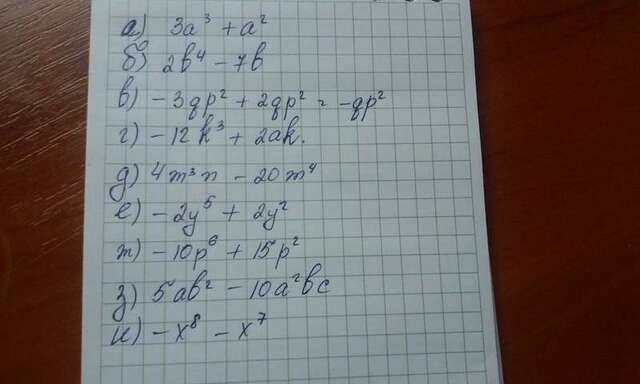 а) 3a³ + a²
б) 2b⁴ - 7b
в) - 3qp² + 2qp² = -qp²
г) - 12k³ + 2ak.
д) 4m³n - 20m⁴
е) - 2y⁵ + 2y²
ж) - 10p⁶ + 15p²
з) 5ab² - 10a²bc
и) - x⁸ - x⁷